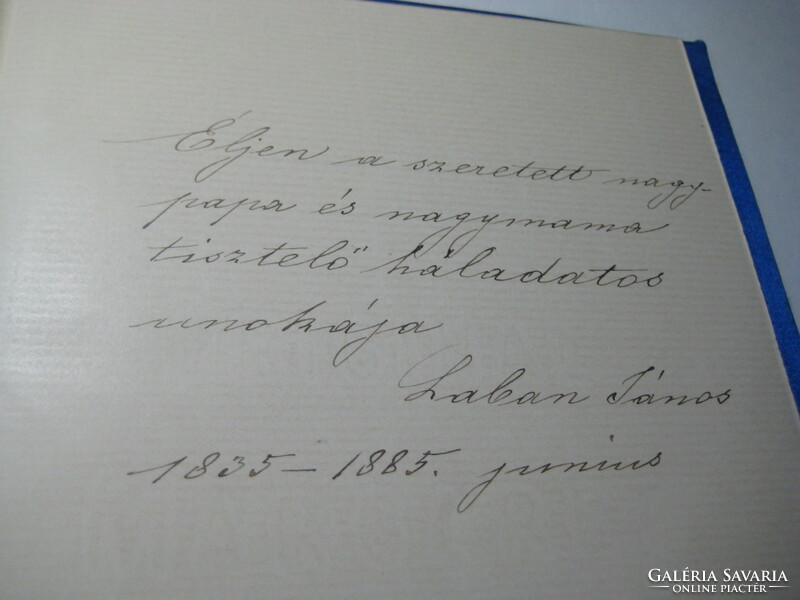 Éljen a szeretett nagy-
papa és nagymama
tisztelő háladatos
unokája
Laban János
1835 – 1885. junius
GALÉRIA SAVARIA
ONLINE PIACTÉR